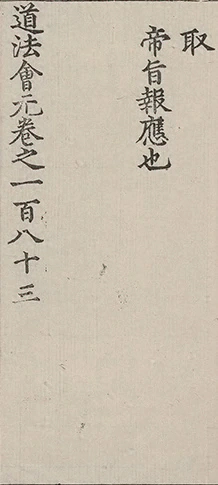 取
帝旨報應也
道法會元卷之一百八十三